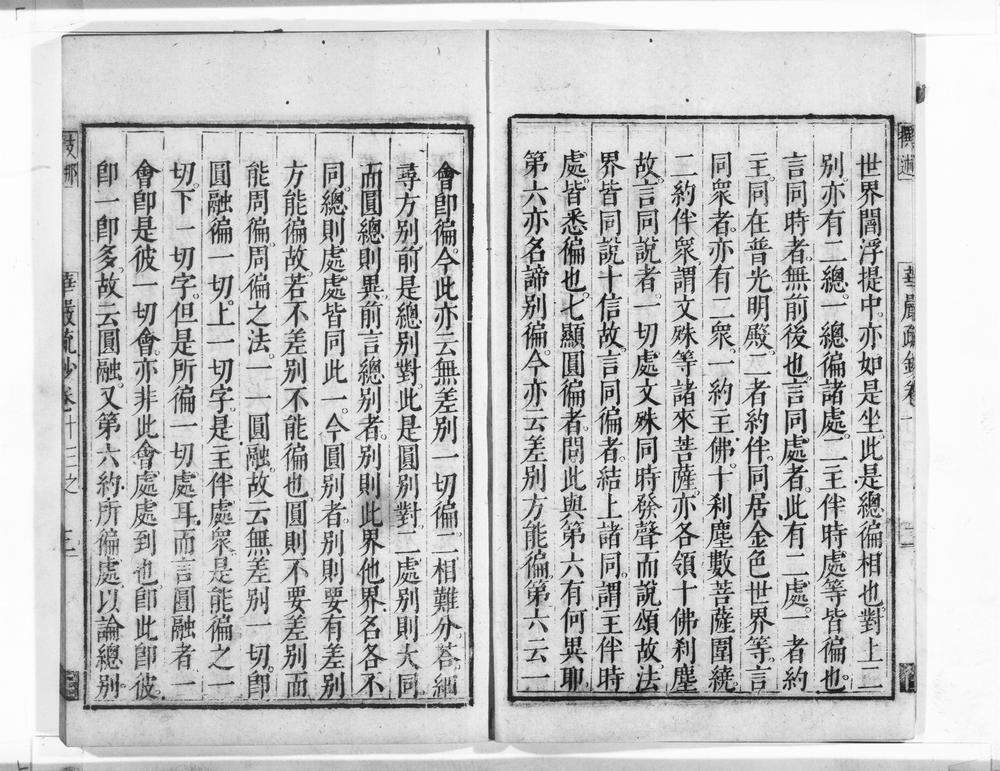 世界閻浮提中。亦如是坐。此是總徧相也。對上二
別。亦有二總。一總徧諸處。二主伴時處等皆徧也。
言同時者。無前後也。言同處者。此有二處。一者約
王。同在普光明殿。二者約伴。同居金色世界等。言
同衆者。亦有二衆。一約王佛。十刹塵數菩薩圍繞。
二約伴衆。謂文殊等諸來菩薩。亦各領十佛刹塵
故。言同說者。一切處文殊同時發聲而說頌故。法
界皆同說十信故。言同徧者。結上諸同。謂王伴時
處。皆悉徧也。七顯圓徧者。問此與第六有何異耶。
第六亦名諦別徧。今亦云差別方能徧。第六云一
會卽徧。今此亦云無差別一切徧。二相難分。荅。細
尋方別。前是總別對。此是圓別對。二處別則大同。
而圓總則異。前言總別者。別則此界他界名各不
同。總則處處皆同此一。今圓別者。別則要有差別
方能徧故。若不差別不能徧也。圓則不要差別而
能周徧。周徧之法。一一圓融。故云無差別一切。卽
圓融徧一切。上一切字是主伴處衆。是能徧之一
切。下一切字。但是所徧一切處耳。而言圓融者。一
會卽是彼一切會。亦非此會處處到也。卽此卽彼。
卽一卽多。故云圓融。又第六約所徧處。以論總別。
華嚴疏鈔卷十三之